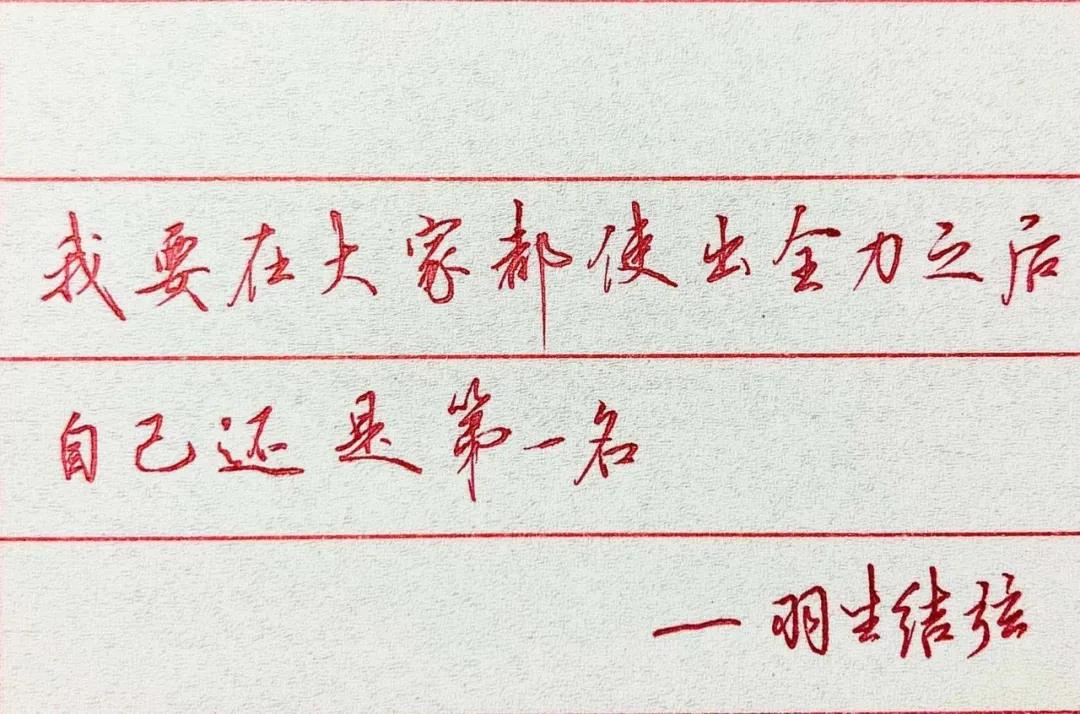 我要在大家都使出全力之后
自己还是第一名
—羽生结弦